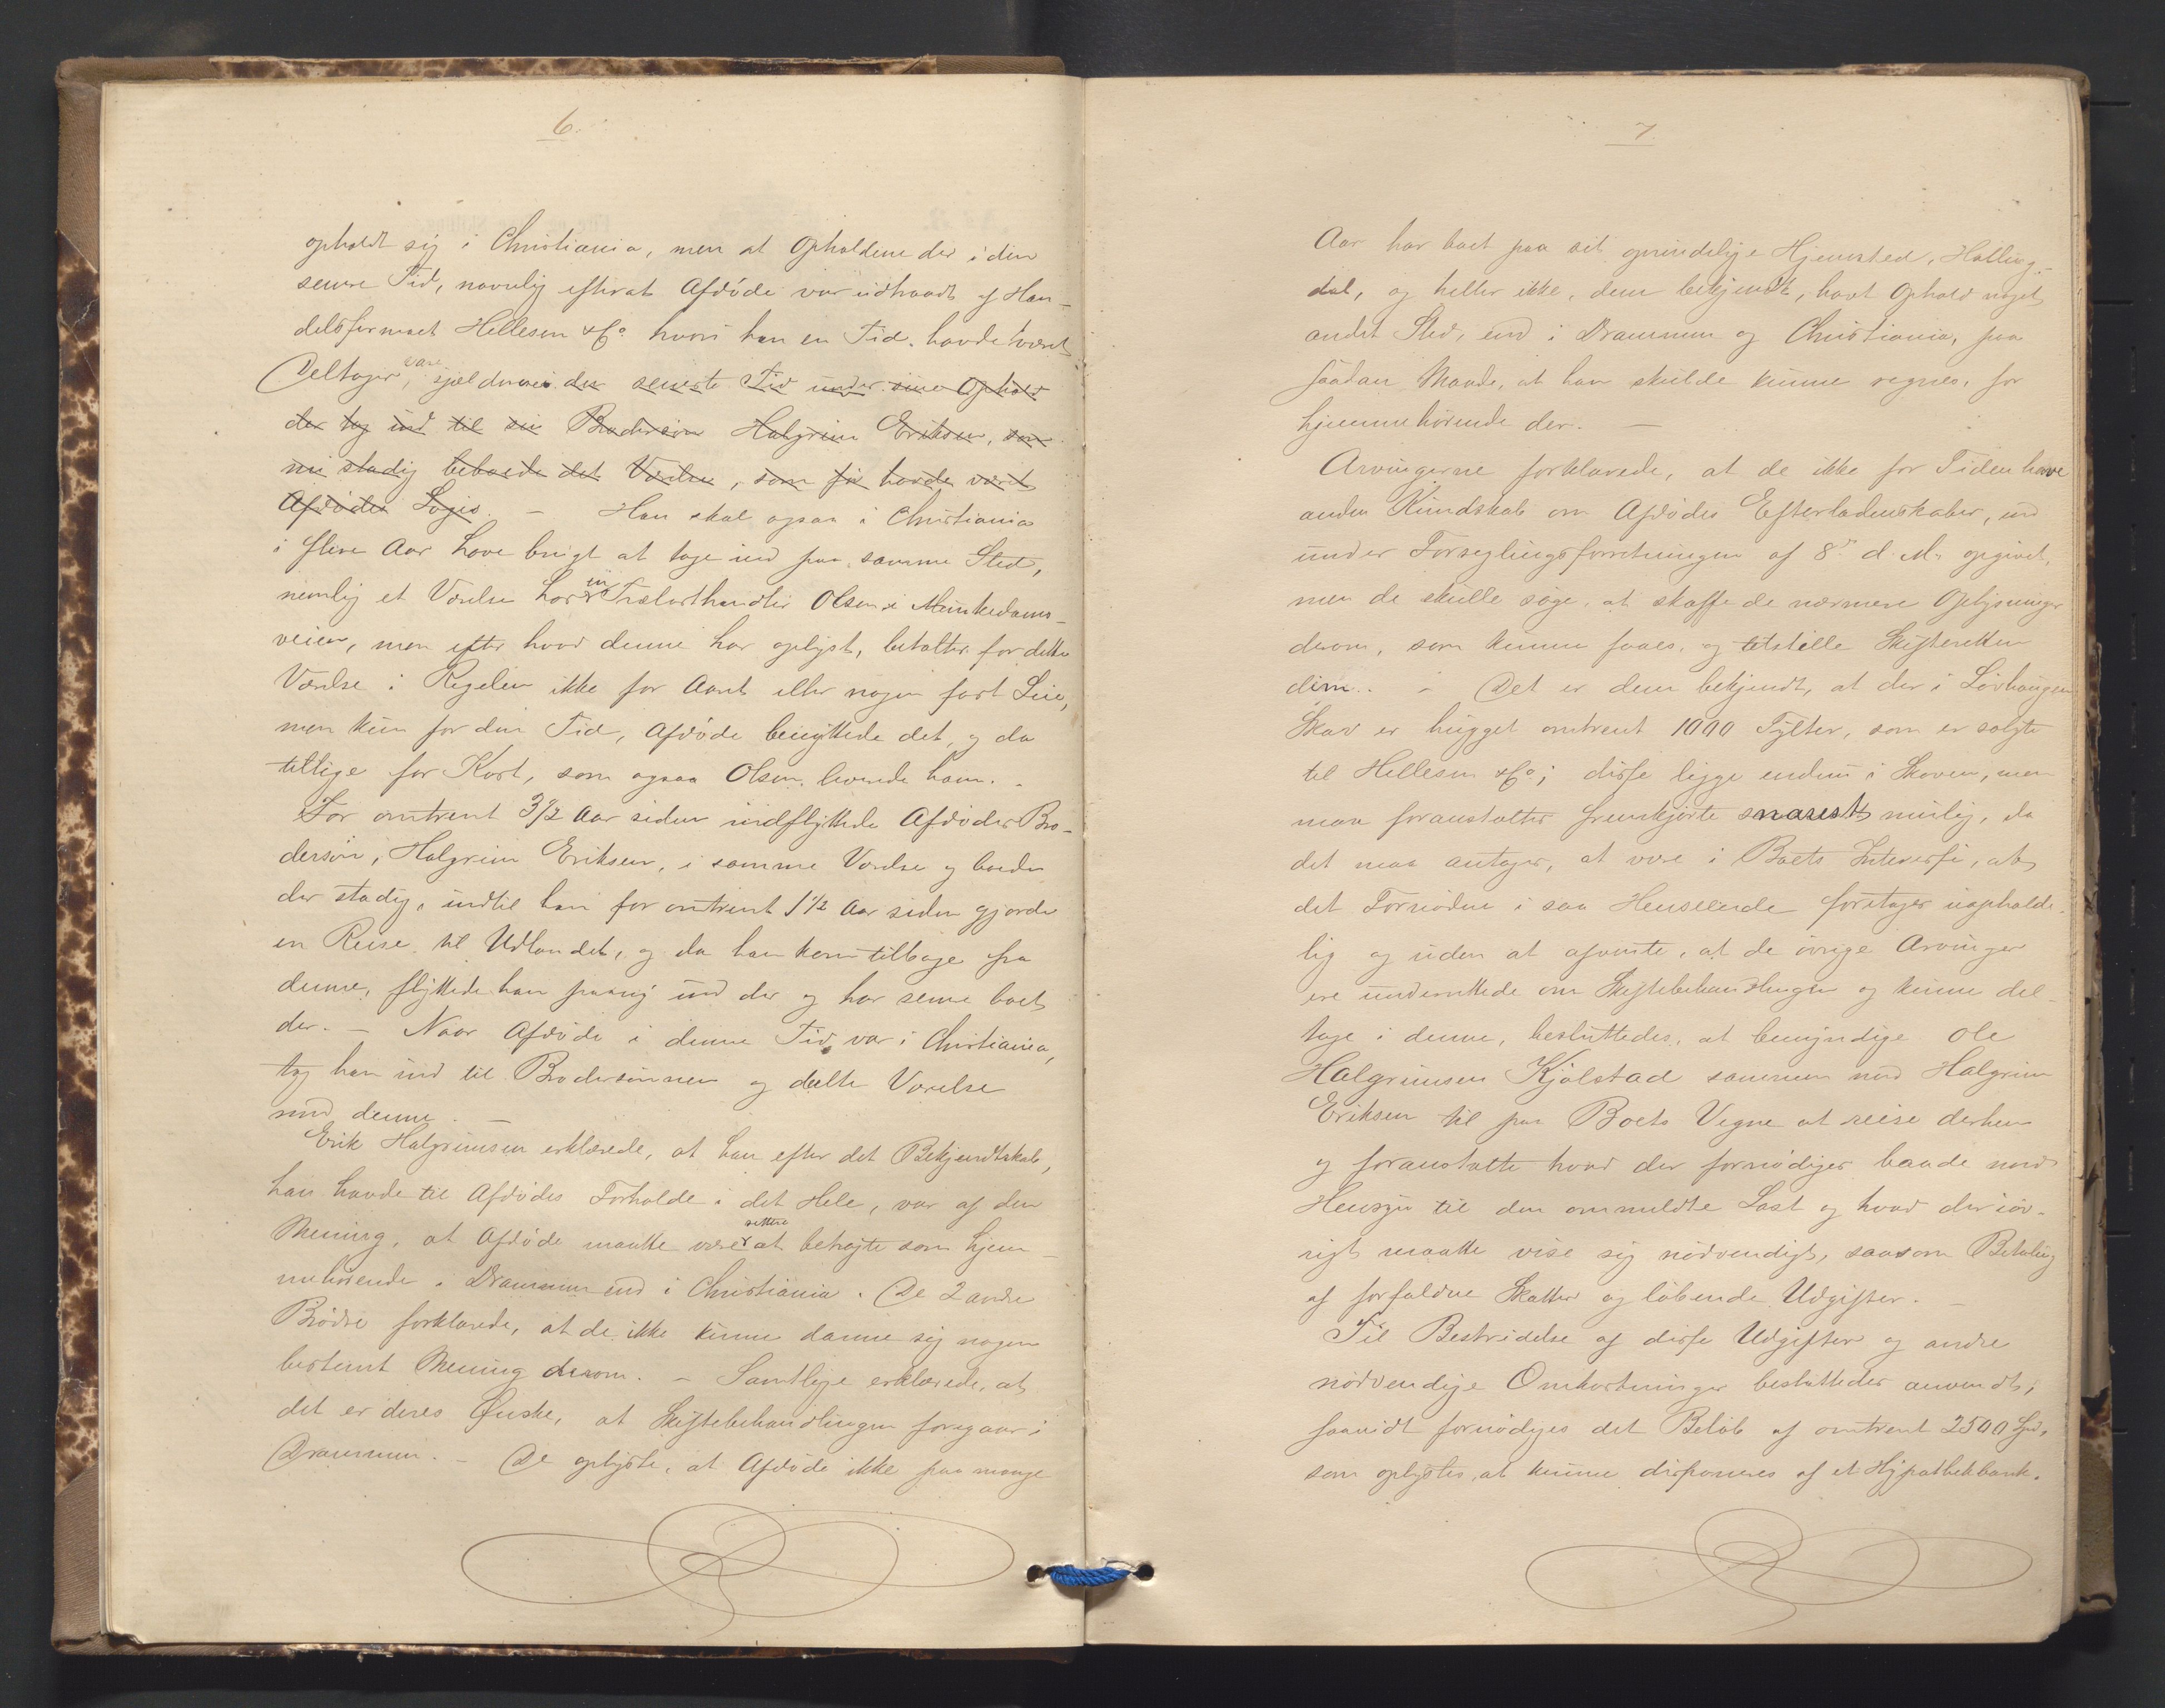 6.
opholdt sig i Christiania, men at Opholdene der i den
senere Tid, navnlig efterat Afdøde var udtraadt af Han-
delsfirmaet Hellesen & Co hvori han en Tid havde været
Deltager, vare sjeldnere i den seneste Tid under sine Ophold
der tog ind til sin Brodersøn Halgrim Eriksen, som
nu stadig beboede det Værelse, som før havde været
Afdødes Logis. — Han skal ogsaa i Christiania
i flere Aar have brugt at tage ind paa samme Sted,
nemlig et Værelse hos en Trælasthandler Olsen i Munkedams-
veien, men efter hvad denne har oplyst, betaltes for dette
Værelse i Regelen ikke for Aaret eller nogen fast Leie,
men kun for den Tid, Afdøde benyttede det, og da
tillige for Kost, som ogsaa Olsen leverede ham. -
For omtrent 3½ Aar siden indflyttede Afdødes Bro-
dersøn, Halgrim Eriksen, i samme Værelse og boede
der stadig, indtil han for omtrent 1½ Aar siden gjorde
en Reise til Udlandet, og da han kom tilbage fra
denne, flyttede han paany ind der og har senere boet
der. — Naar Afdøde i denne Tid var i Christiania,
tog han ind til Brodersønnen og deelte Værelse
med denne. —
Erik Halgrimsen erklærede, at han efter det Bekjendtskab,
han havde til Afdødes Forholde i det Hele, var af den
Mening, at Afdøde maatte være rettere at betragte som hjem-
mehørende i Drammen end i Christiania. De 2 andre
Brødre forklarede, at de ikke kunne danne sig nogen
bestemt Mening derom. — Samtlige erklærede, at
det er deres Ønske, at Skiftebehandlingen foregaar i
Drammen. — De oplyste, at Afdøde ikke paa mange
7.
Aar har boet paa sit oprindelige Hjemsted, Halling-
dal, og heller ikke, dem bekjendt, havt Ophold noget
andet Sted, end i Drammen og Christiania, paa
saadan Maade, at han skulde kunne regnes for
hjemmehørende der. —
Arvingerne forklarede, at de ikke for Tiden have
anden Kundskab om Afdødes Efterladenskaber, end
under Forseglingsforretningen af 8de d. M. opgivet,
men de skulle søge at skaffe de nærmere Oplysninger
derom, som kunne faaes, og tilstille Skifteretten
dem. - Det er dem bekjendt, at der i Løvhaugen
Skov er hugget omtrent 1000 Tylter, som er solgte
til Hellesen & Co; disse ligge endnu i Skoven, men
maa foranstaltes fremkjørte snarest mulig, da
det maa antages, at være i Boets Interesse, at
det Fornødne i saa Henseende foretages uopholde-
lig og uden at afvente, at de øvrige Arvinger
ere underrettede om Skiftebehandlingen og kunne del-
tage i denne, besluttedes, at bemyndige Ole
Halgrimsen Kjølstad sammen med Halgrim
Eriksen til paa Boets Vegne at reise derhen
og foranstalte hvad der fornødiges baade med
Hensyn til den ommeldte Last og hvad der iøv-
rigt maatte vise sig nødvendigt, saasom Betaling
af forfaldne Skatter og løbende Udgifter. —
Til Bestridelse af disse Udgifter og andre
nødvendige Omkostninger besluttedes anvendt,
saavidt fornødiges det Beløb af omtrent 2500 Spd.
som oplystes, at kunne disponeres af et Hypothekbank-